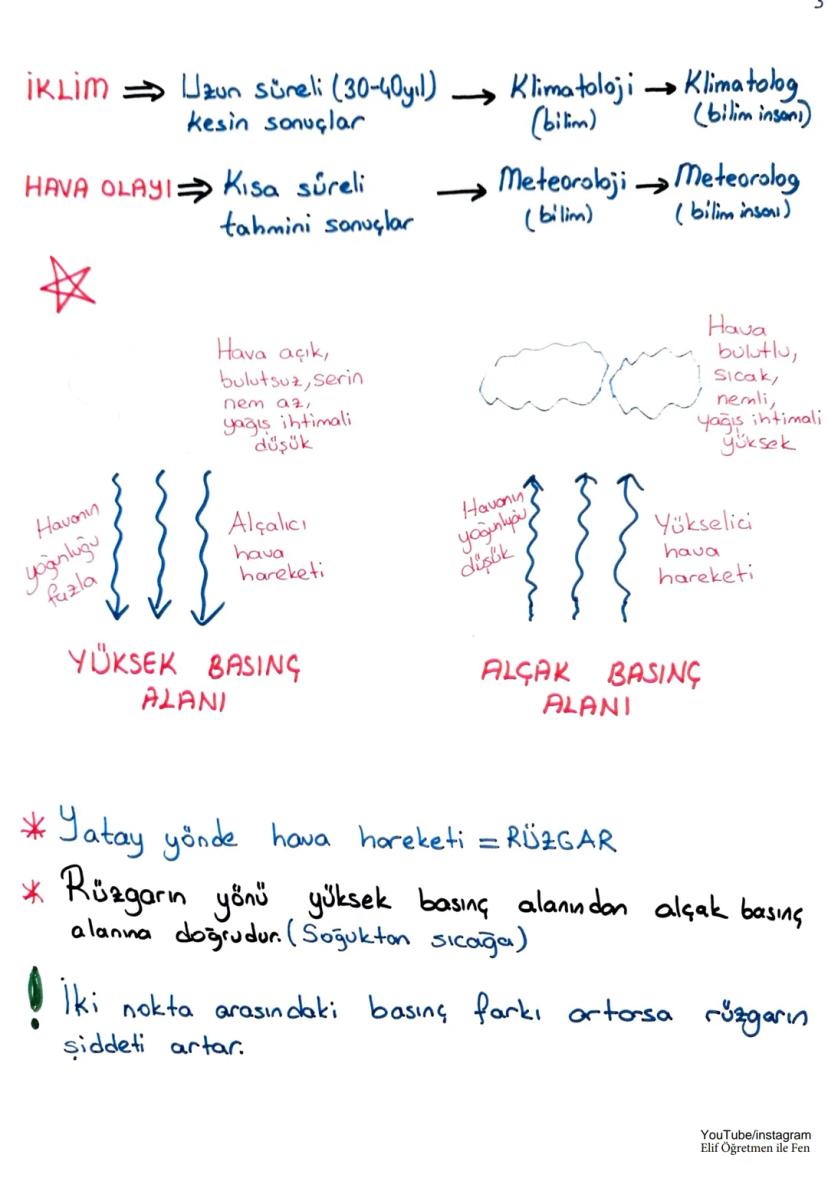 3
İKLİM ⇒ Uzun süreli (30-40yıl) → Klimatoloji → Klimatolog
kesin sonuçlar (bilim) (bilim insanı)
HAVA OLAYI ⇒ Kısa süreli → Meteoroloji → Meteorolog
tahmini sonuçlar (bilim) (bilim insanı)
Hava açık,
bulutsuz, serin
nem az,
yağış ihtimali
düşük
Hava
bulutlu,
sıcak,
nemli,
yağış ihtimali
yüksek
Havanın
yoğunluğu
fazla
Alçalıcı
hava
hareketi
Havanın
yoğunluğu
düşük
Yükselici
hava
hareketi
YÜKSEK BASINÇ
ALANI
ALÇAK BASINÇ
ALANI
* Yatay yönde hava hareketi = RÜZGAR
* Rüzgarın yönü yüksek basınç alanından alçak basınç
alanına doğrudur. (Soğuktan sıcağa)
! İki nokta arasındaki basınç farkı artarsa rüzgarın
şiddeti artar.
YouTube/instagram
Elif Öğretmen ile Fen